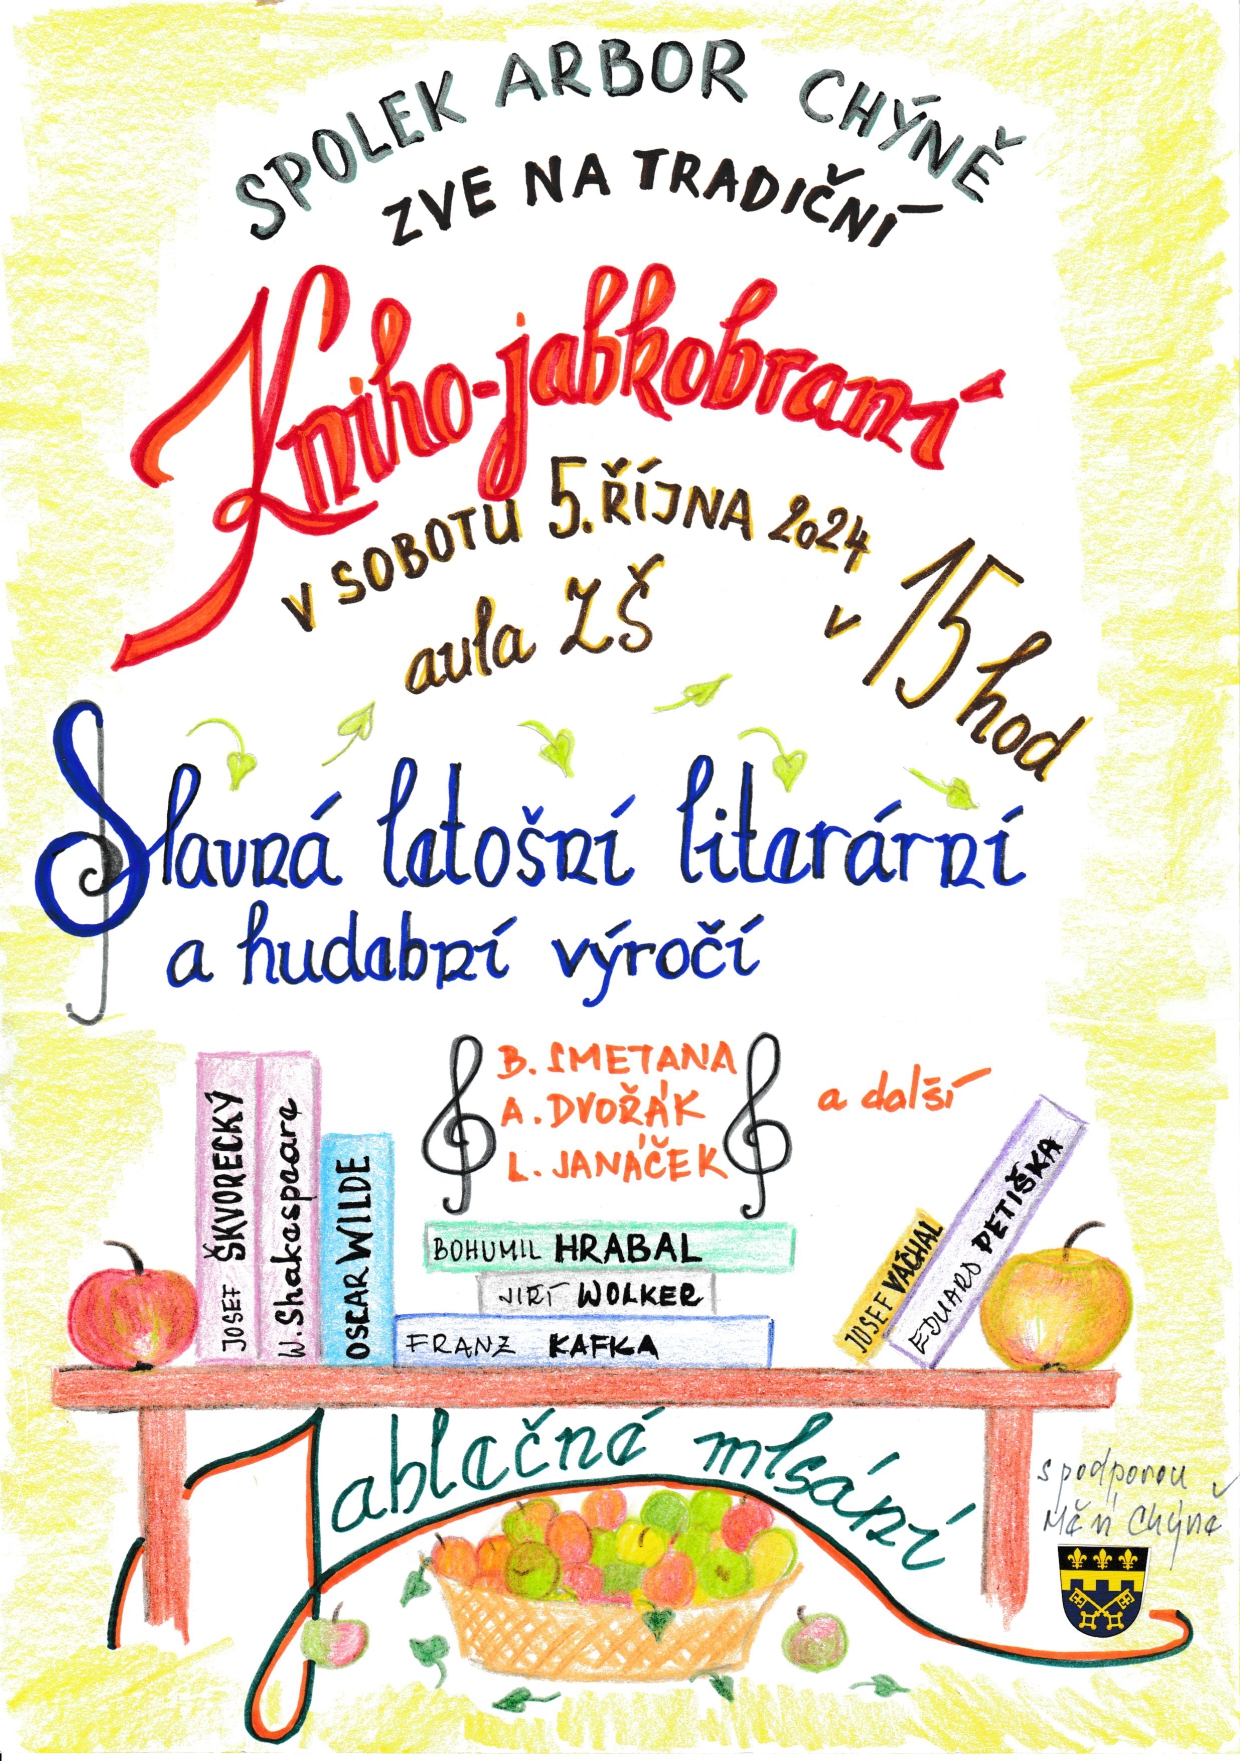 SPOLEK ARBOR CHÝNĚ
ZVE NA TRADIČNÍ
Kniho-jabkobraní
V SOBOTU 5. ŘÍJNA 2024
v 15 hod
aula ZŠ
Slavná letošní literární
a hudební výročí
B. SMETANA
A. DVOŘÁK
L. JANÁČEK
a další
JOSEF ŠKVORECKÝ
W. Shakespeare
OSCAR WILDE
BOHUMIL HRABAL
JIŘÍ WOLKER
FRANZ KAFKA
JOSEF VÁCHAL
EDUARD PETIŠKA
Jablečné mlsání
s podporou
MěÚ Chýně